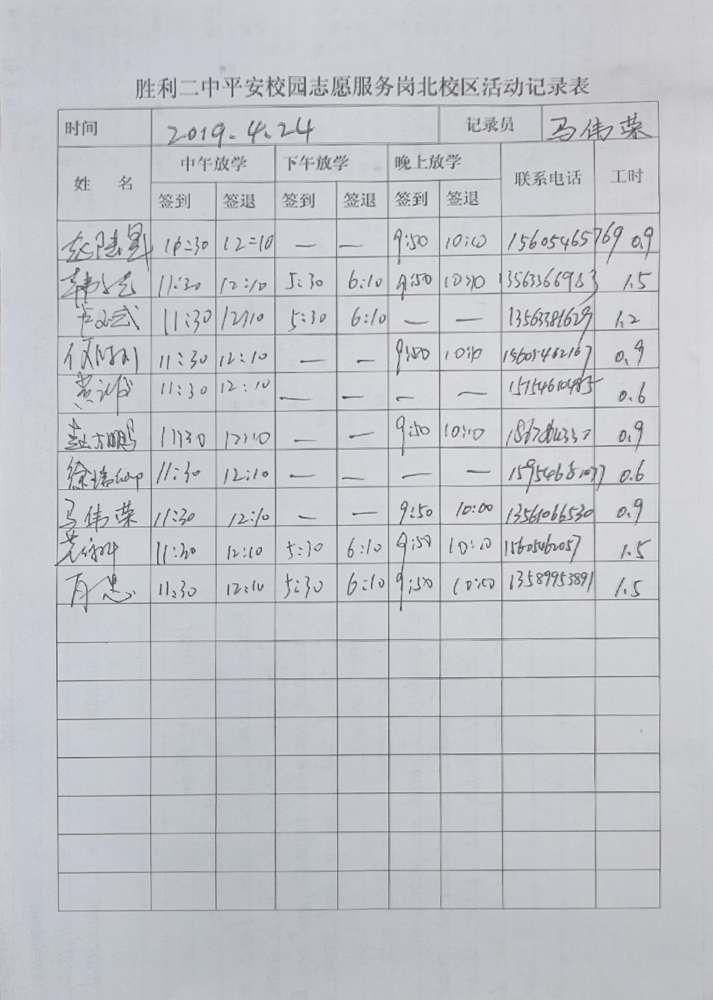 胜利二中平安校园志愿服务岗北校区活动记录表
时间 2019.4.24 记录员 马伟荣
姓 名 中午放学 下午放学 晚上放学 联系电话 工时
签到 签退 签到 签退 签到 签退
12=10 — — 9:50 10:10 15605465769 0.9
11:30 12:10 5:30 6:10 9:50 10:10 13563366983 1.5
11:30 12:10 5:30 6:10 — — 1.2
11:30 12:10 — — 9:50 10:10 0.9
11:30 12:10 — — — — 0.6
11:30 12:10 — — 9:50 10:10 0.9
11:30 12:10 — — — — 0.6
马伟荣 11:30 12:10 — — 9:50 10:00 13561066530 0.9
11:30 12:10 5:30 6:10 9:50 10:10 15605462057 1.5
11:30 12:10 5:30 6:10 9:50 10:10 13589953891 1.5